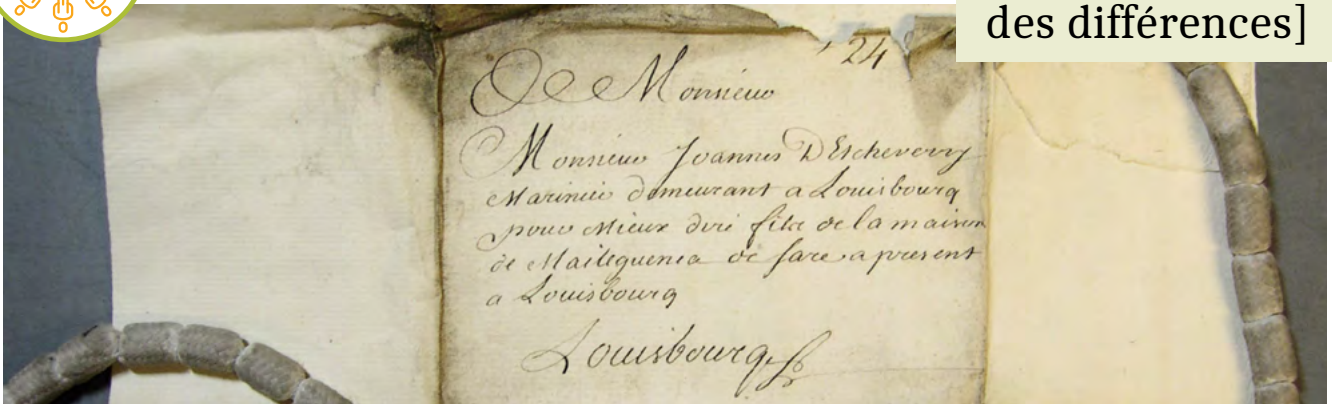 des différences]
24
Monsieur
Monsieur Joannis D Etcheverry
Marinié demeurant a Louisbourg
pour Mieux diré fils de la maison
de Maileguenea de sare a present
a Louisbourg
Louisbourg